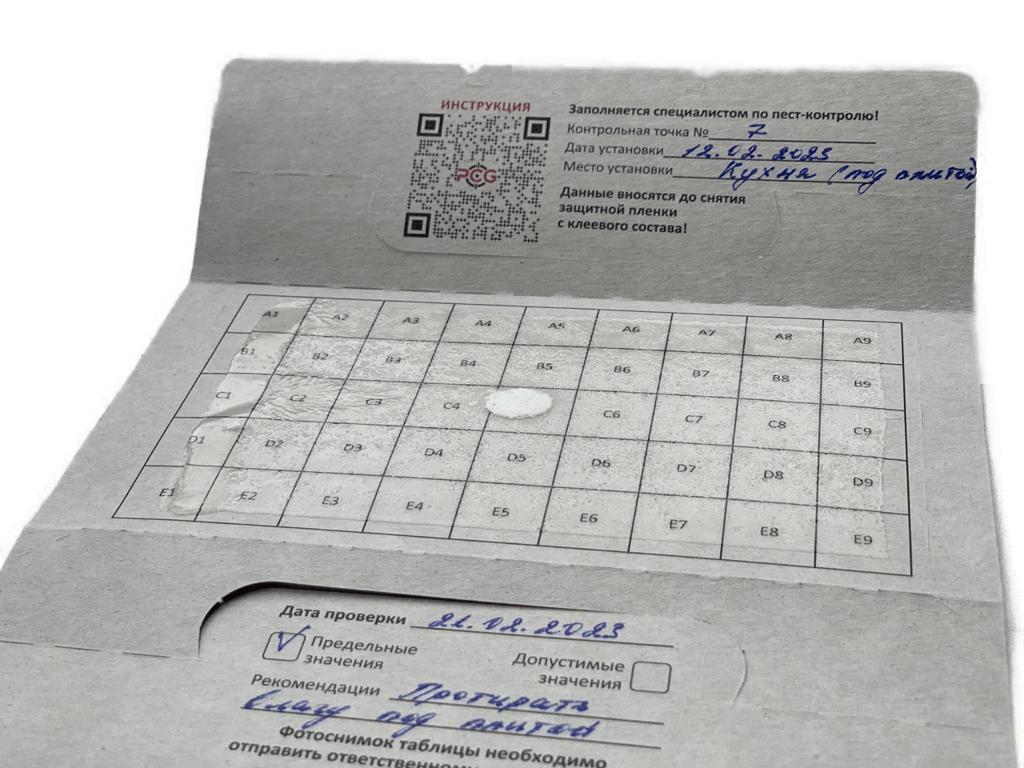 ИНСТРУКЦИЯ
PCG
Заполняется специалистом по пест-контролю!
Контрольная точка № 7
Дата установки 12.02.2023
Место установки Кухня (под плитой)
Данные вносятся до снятия
защитной пленки
с клеевого состава!
A1 A2 A3 A4 A5 A6 A7 A8 A9
B1 B2 B3 B4 B5 B6 B7 B8 B9
C1 C2 C3 C4 C6 C7 C8 C9
D1 D2 D3 D4 D5 D6 D7 D8 D9
E1 E2 E3 E4 E5 E6 E7 E8 E9
Дата проверки 21.02.2023
Предельные
значения
Допустимые
значения
Рекомендации Протирать
влагу под плитой
Фотоснимок таблицы необходимо
отправить